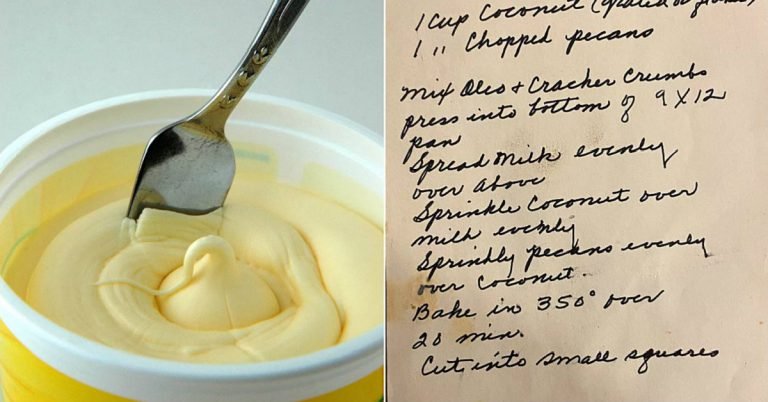 1 Cup Coconut (grated or
1 " Chopped pecans
Mix Oleo + Cracker Crumbs
press into bottom of 9 X 12
pan
Spread Milk evenly
over above
Sprinkle Coconut over
milk evenly
Sprinkly pecans evenly
over Coconut.
Bake in 350° over
20 min.
Cut into small squares